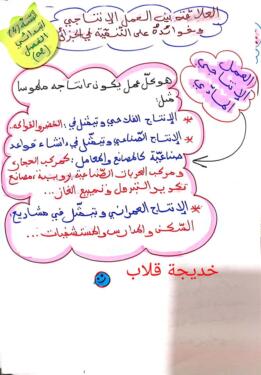 العلاقة بين العمل الإنتاجي
وفوائده على التنمية في الجزائر
العمل
الإنتاجي
المادي
هو كل عمل يكون إنتاجه ملموسا
مثل:
* الإنتاج الفلاحي ويتمثل في: الخضر والفواكه.
* الإنتاج الصناعي ويتمثل في: انشاء قواعد
صناعية كالمصانع والمعامل: كمركب الحجار
ومركب الصناعية برويبة، مصانع
تكرير البترول وتمييع الغاز...
* الإنتاج العمراني ويتمثل في مشاريع
السكن والمدارس والمستشفيات...
خديجة قلاب